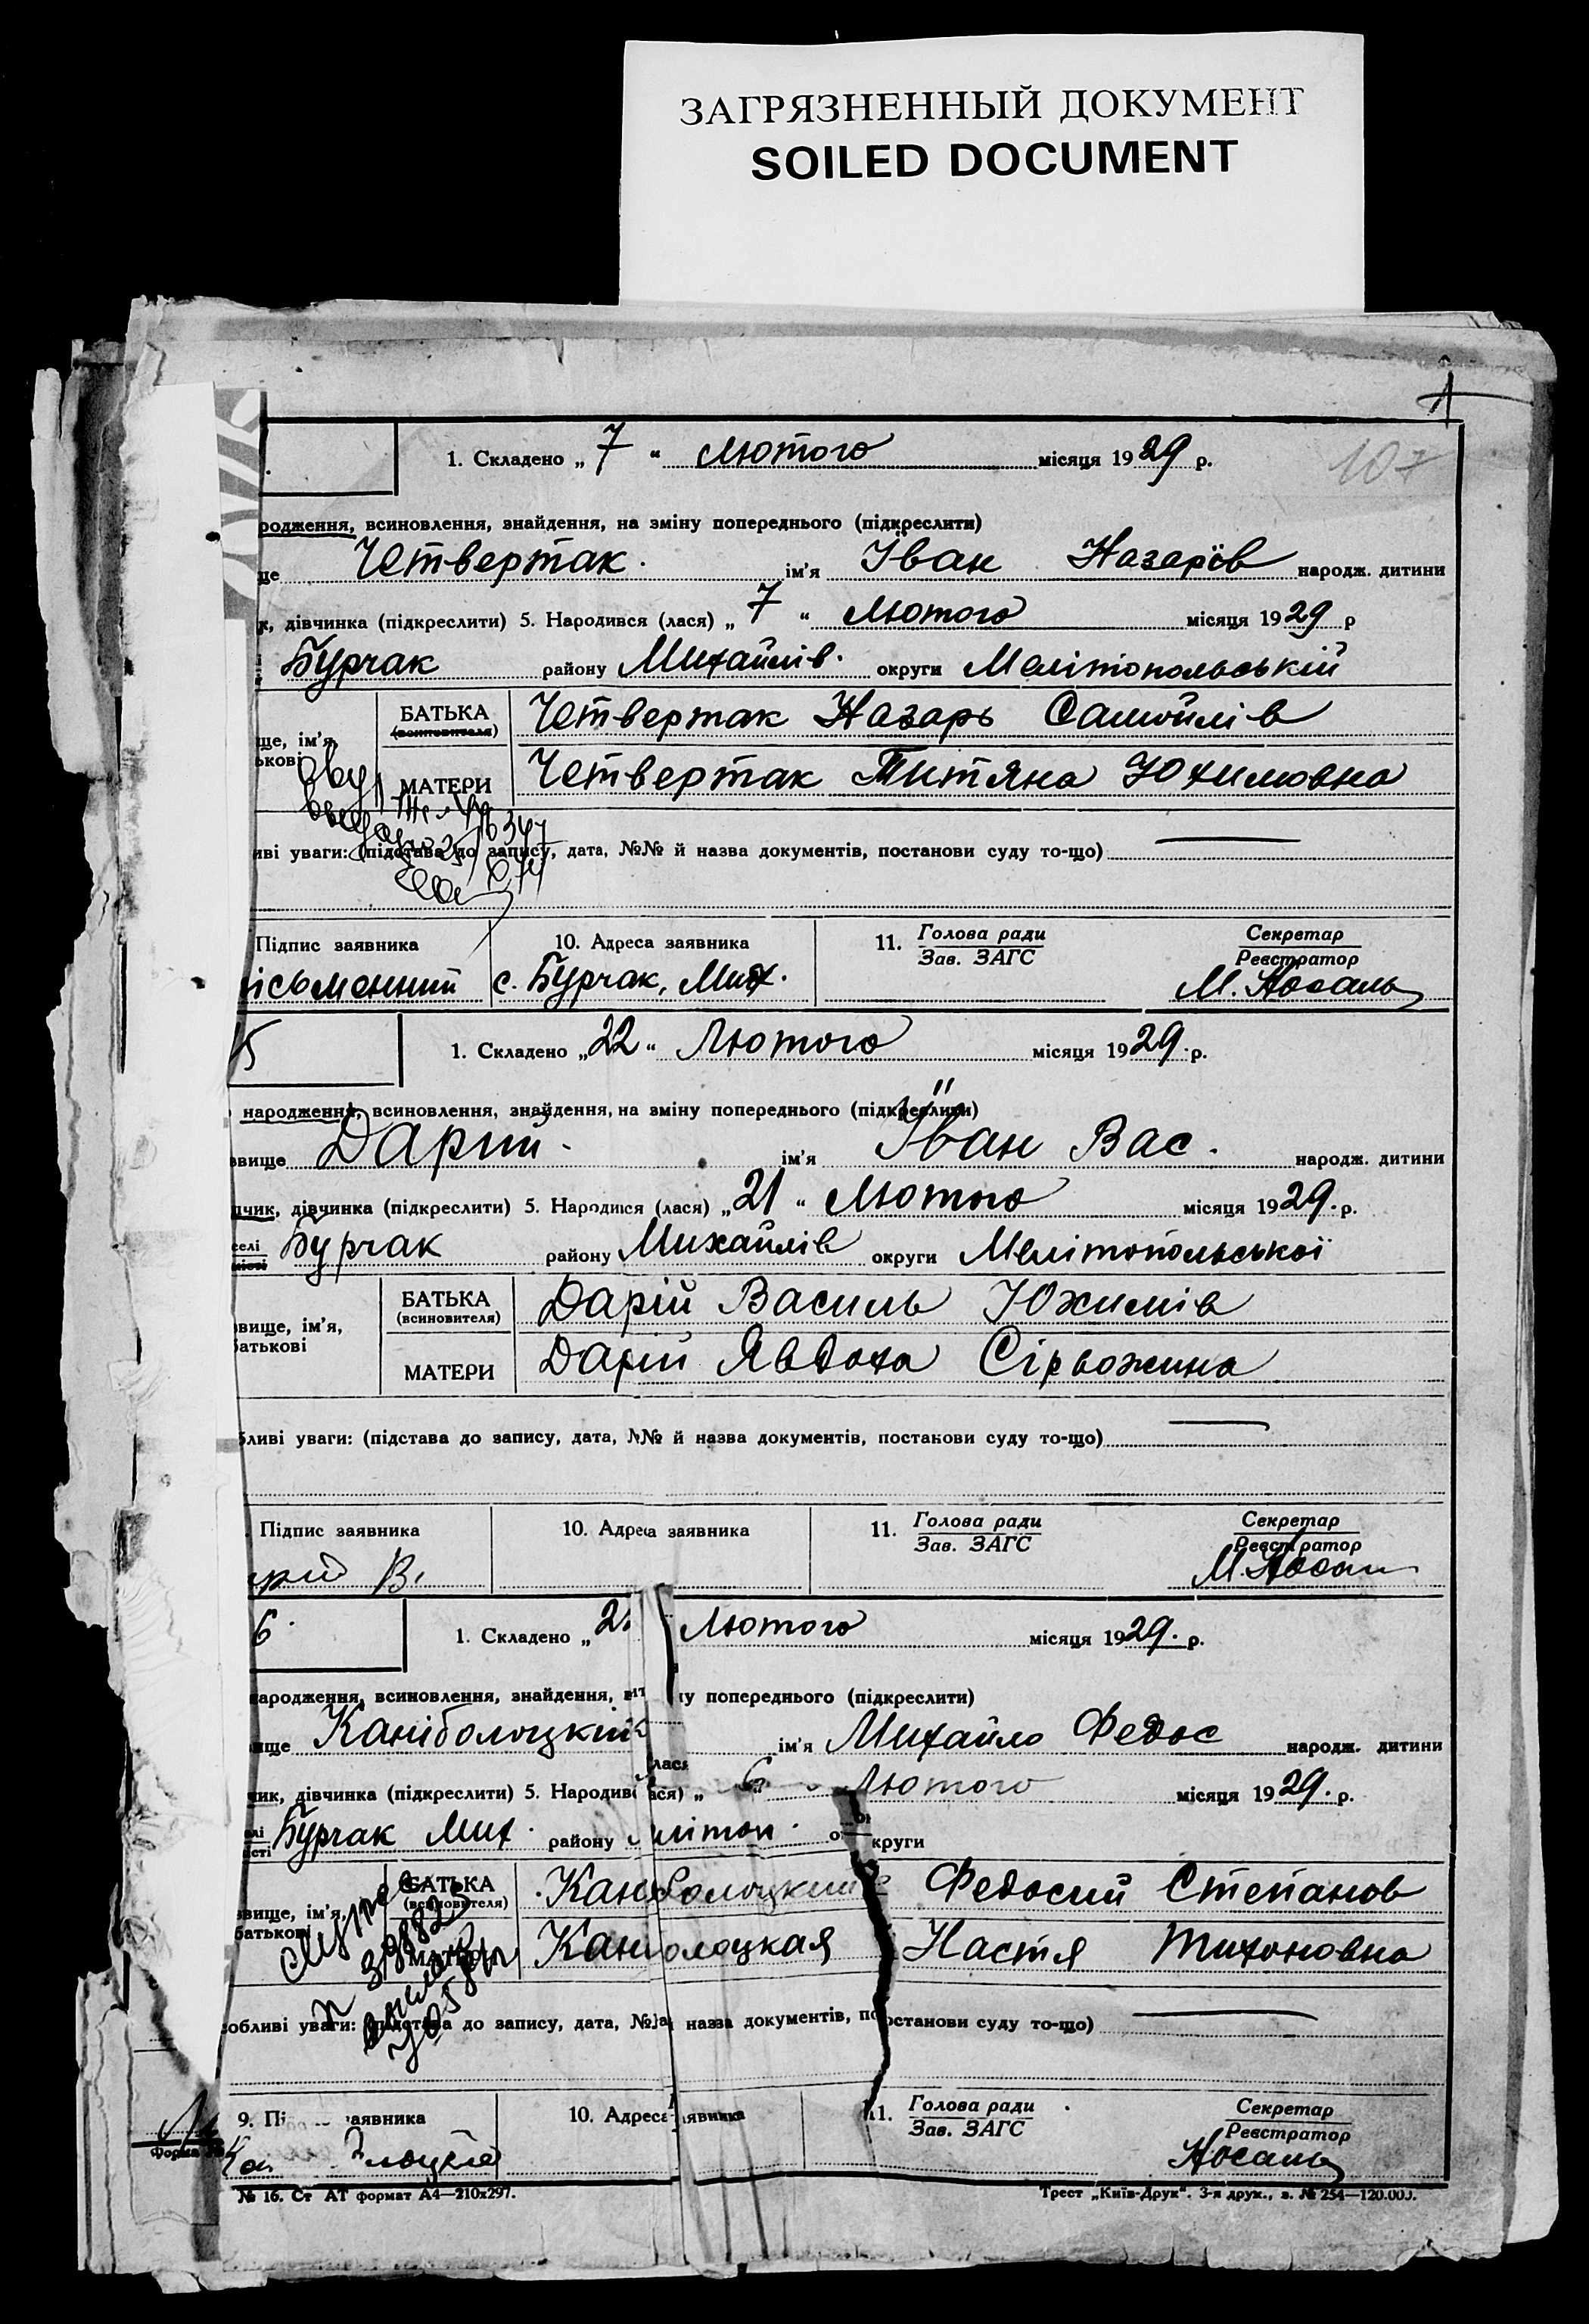 ЗАГРЯЗНЕННЫЙ ДОКУМЕНТ
SOILED DOCUMENT
107
1. Складено „ 7 “ лютого місяця 1929 р.
родження, всиновлення, знайдення, на зміну попереднього (підкреслити)
ще Четвертак. ім’я Їван Назарів народж. дитини
к, дівчинка (підкреслити) 5. Народився (лася) „ 7 “ Лютого місяця 1929 р
Бурчак району Михайлів. округи Мелітопольській
ще, ім’я,
ькові
БАТЬКА (всиновителя) Четвертак Назарь Самойлів
МАТЕРИ Четвертак Титяна Юхимовна
иві уваги: (підстава до запису, дата, №№ й назва документів, постанови суду то-що)
Підпис заявника 10. Адреса заявника 11. Голова ради Зав. ЗАГС Секретар Реєстратор
ісьменний с. Бурчак, Мих. М. Носаль
5 1. Складено „22“ Лютого місяця 1929 р.
народження, всиновлення, знайдення, на зміну попереднього (підкреслити)
звище Дарий. ім’я Їван Вас. народж. дитини
пчик, дівчинка (підкреслити) 5. Народився (лася) „21“ Лютого місяця 1929. р.
селі
місті
Бурчак району Михайлів округи Мелітопольської
звище, ім’я,
батькові
БАТЬКА (всиновителя) Дарій Василь Юхимів
МАТЕРИ Дарій Явдоха
бливі уваги: (підстава до запису, дата, №№ й назва документів, постанови суду то-що)
Підпис заявника 10. Адреса заявника 11. Голова ради Зав. ЗАГС Секретар Реєстратор
арій В. М. Носаль
6. 1. Складено „2 Лютого місяця 1929. р.
народження, всиновлення, знайдення, ну попереднього (підкреслити)
вище Каніболоцкій ім’я Михайло Федос народж. дитини
чик, дівчинка (підкреслити) 5. Народивс лася) „ 6 “ Лютого місяця 1929. р.
елі
істі
Бурчак Мих. району літоп. округи
звище, ім’я,
батькові
БАТЬКА (всиновителя) Каніболоцкий Федосий Степанов
МАТЕРИ Каніболоцкая Настя Тихоновна
собливі уваги: (підстава до запису, дата, № назва документів, постанови суду то-що)
9. Пі аявника 10. Адреса аявника 11. Голова ради Зав. ЗАГС Секретар Реєстратор
Кан лоцкій Носаль
Форма
№ 16. Ст АТ формат А4—210х297. Трест „Київ-Друк“. 3-я друк., з. № 254—120.000.